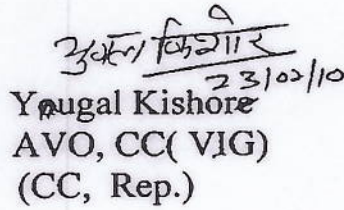 युगल किशोर
23/02/10
Yougal Kishore
AVO, CC( VIG)
(CC, Rep.)